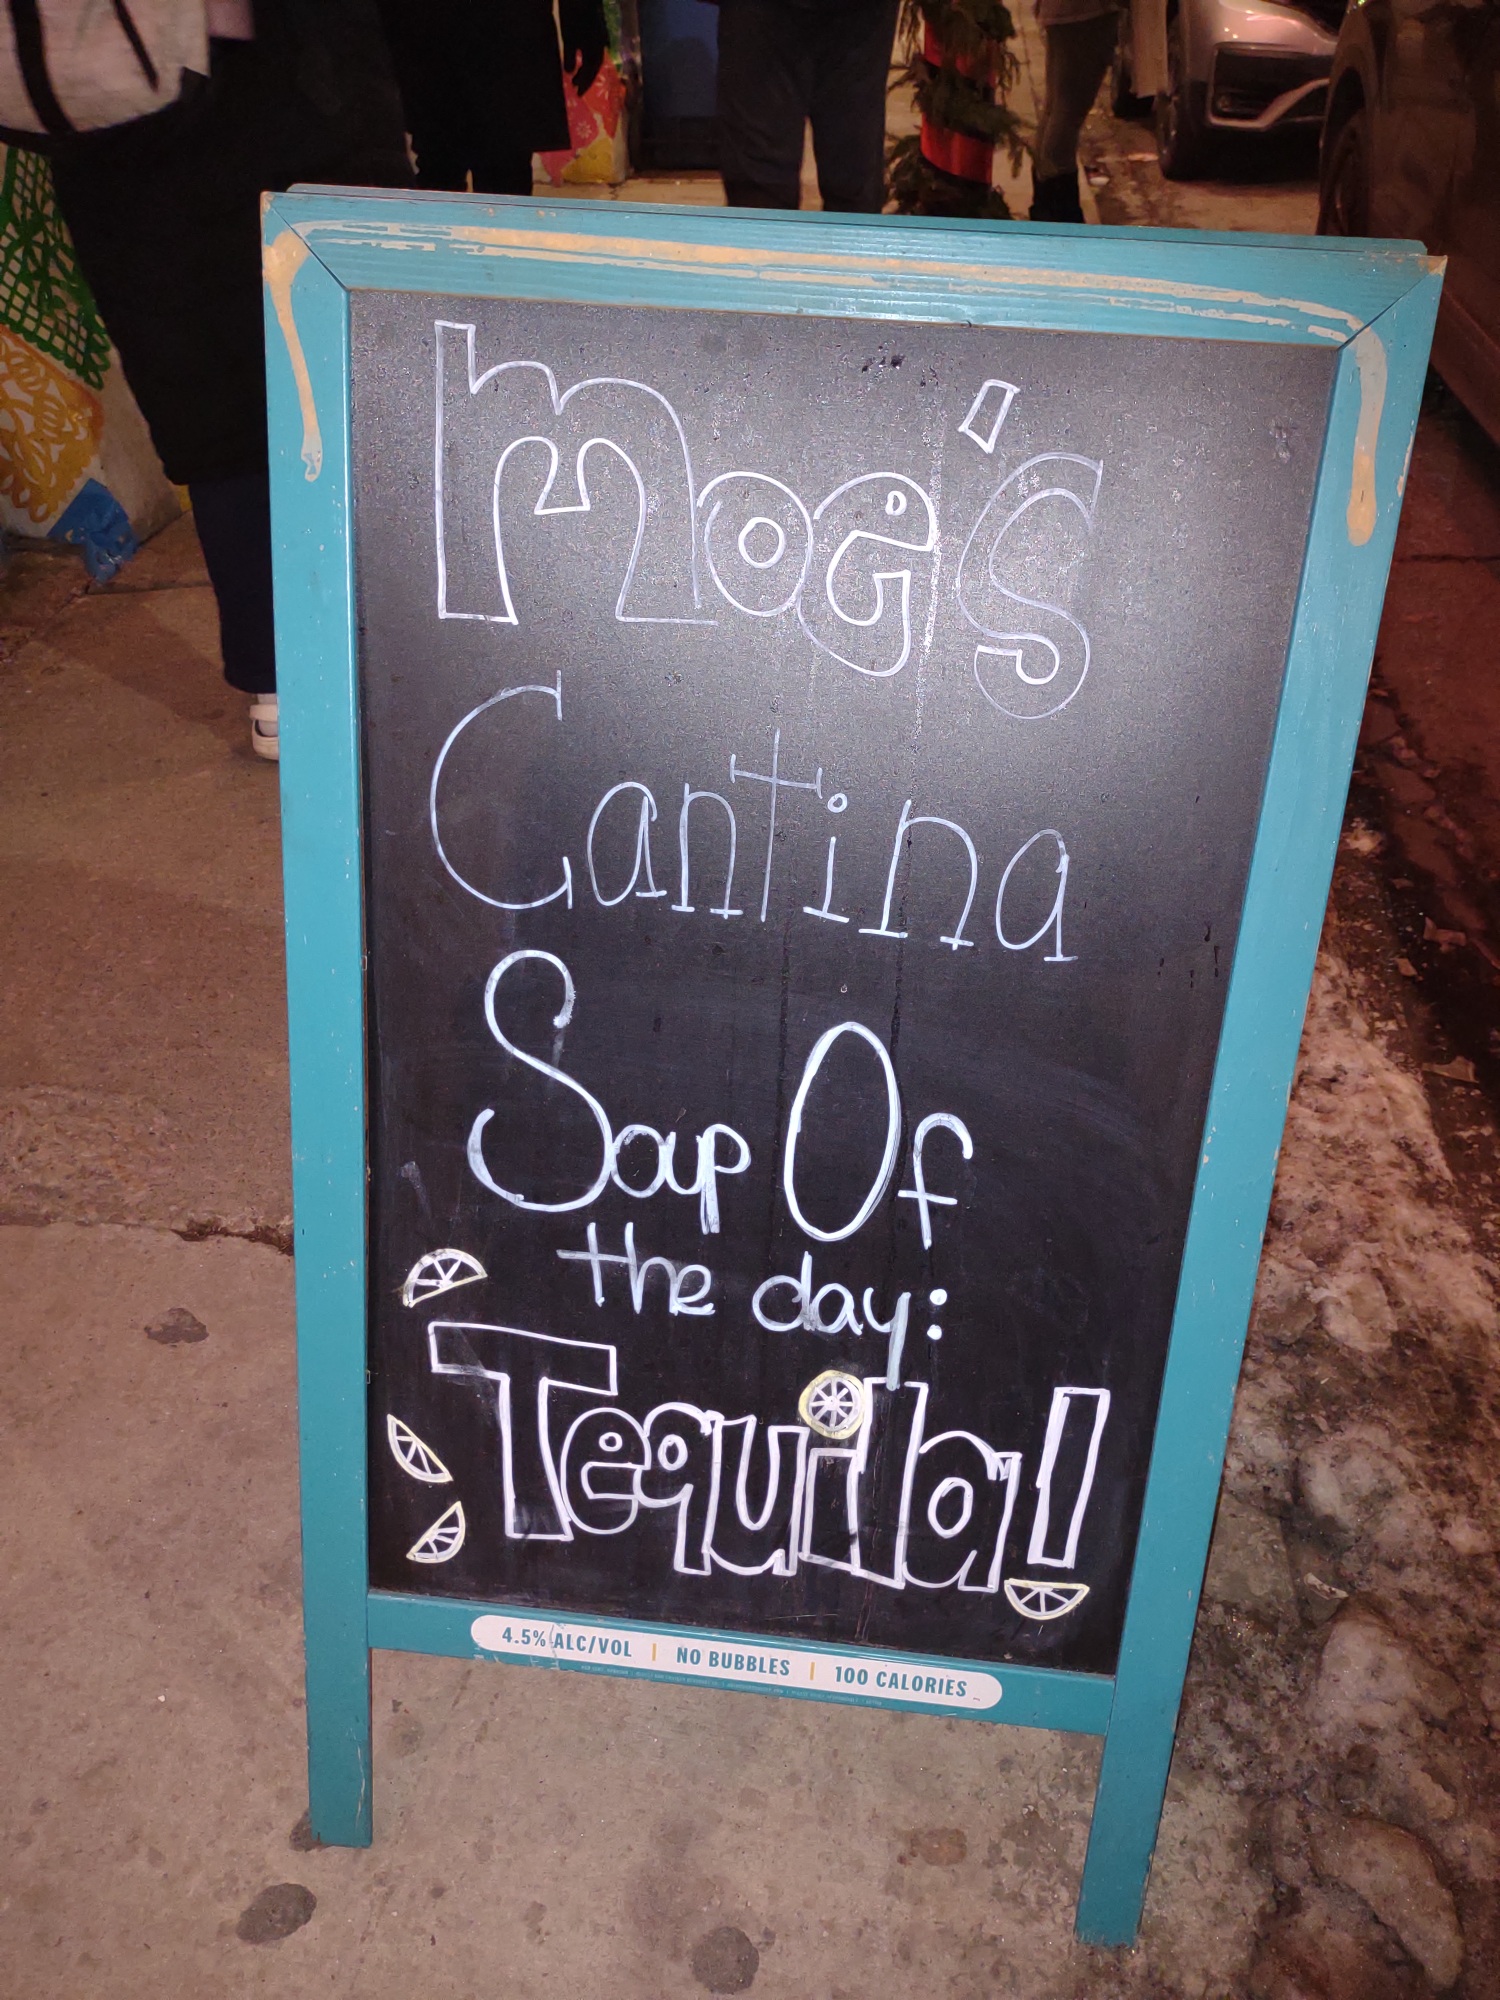 Moe's
Cantina
Soup Of
the day:
Tequila!
4.5% ALC/VOL | NO BUBBLES | 100 CALORIES